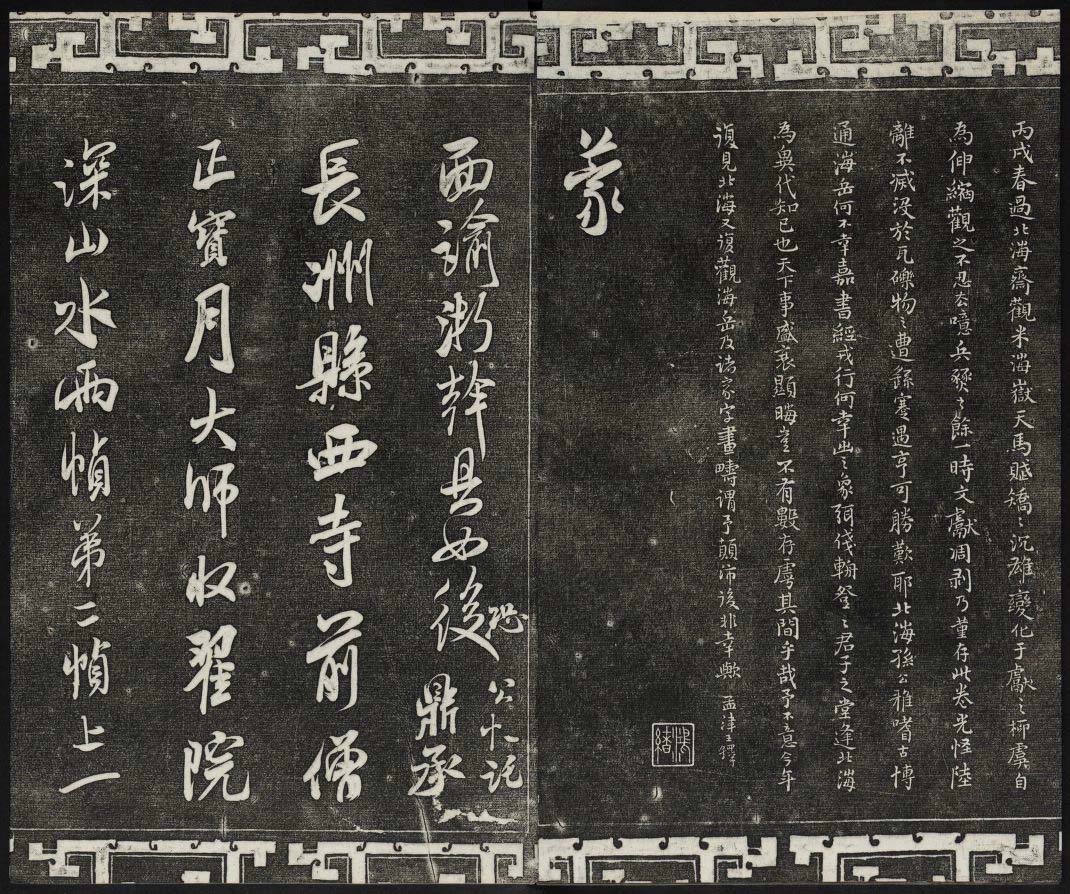 丙戌春過北海齋觀米海嶽天馬賦矯之沉雄變化于獻之柳虞自
為伸縮觀之不忍去噫兵燹之餘一時文獻凋剥乃蓳存此卷光怪陸
離不滅没於瓦礫物之遭錄蹇遇亨可勝歎耶北海孫公雅嗜古博
通海岳何不幸嘉書經戎行何幸此之象弭伐輈登之君子之堂逢北海
為異代知己也天下事盛衰顯晦豈不有數存虖其間乎哉予不意今年
復見北海又復觀海岳及諸家字畫疇謂予顛沛後非幸歟 孟津王鐸
蒙
面諭淛幹具如後
恐公忙託
鼎承
長洲縣西寺前僧
正寶月大師收翟院
深山水兩幀第二幀上一